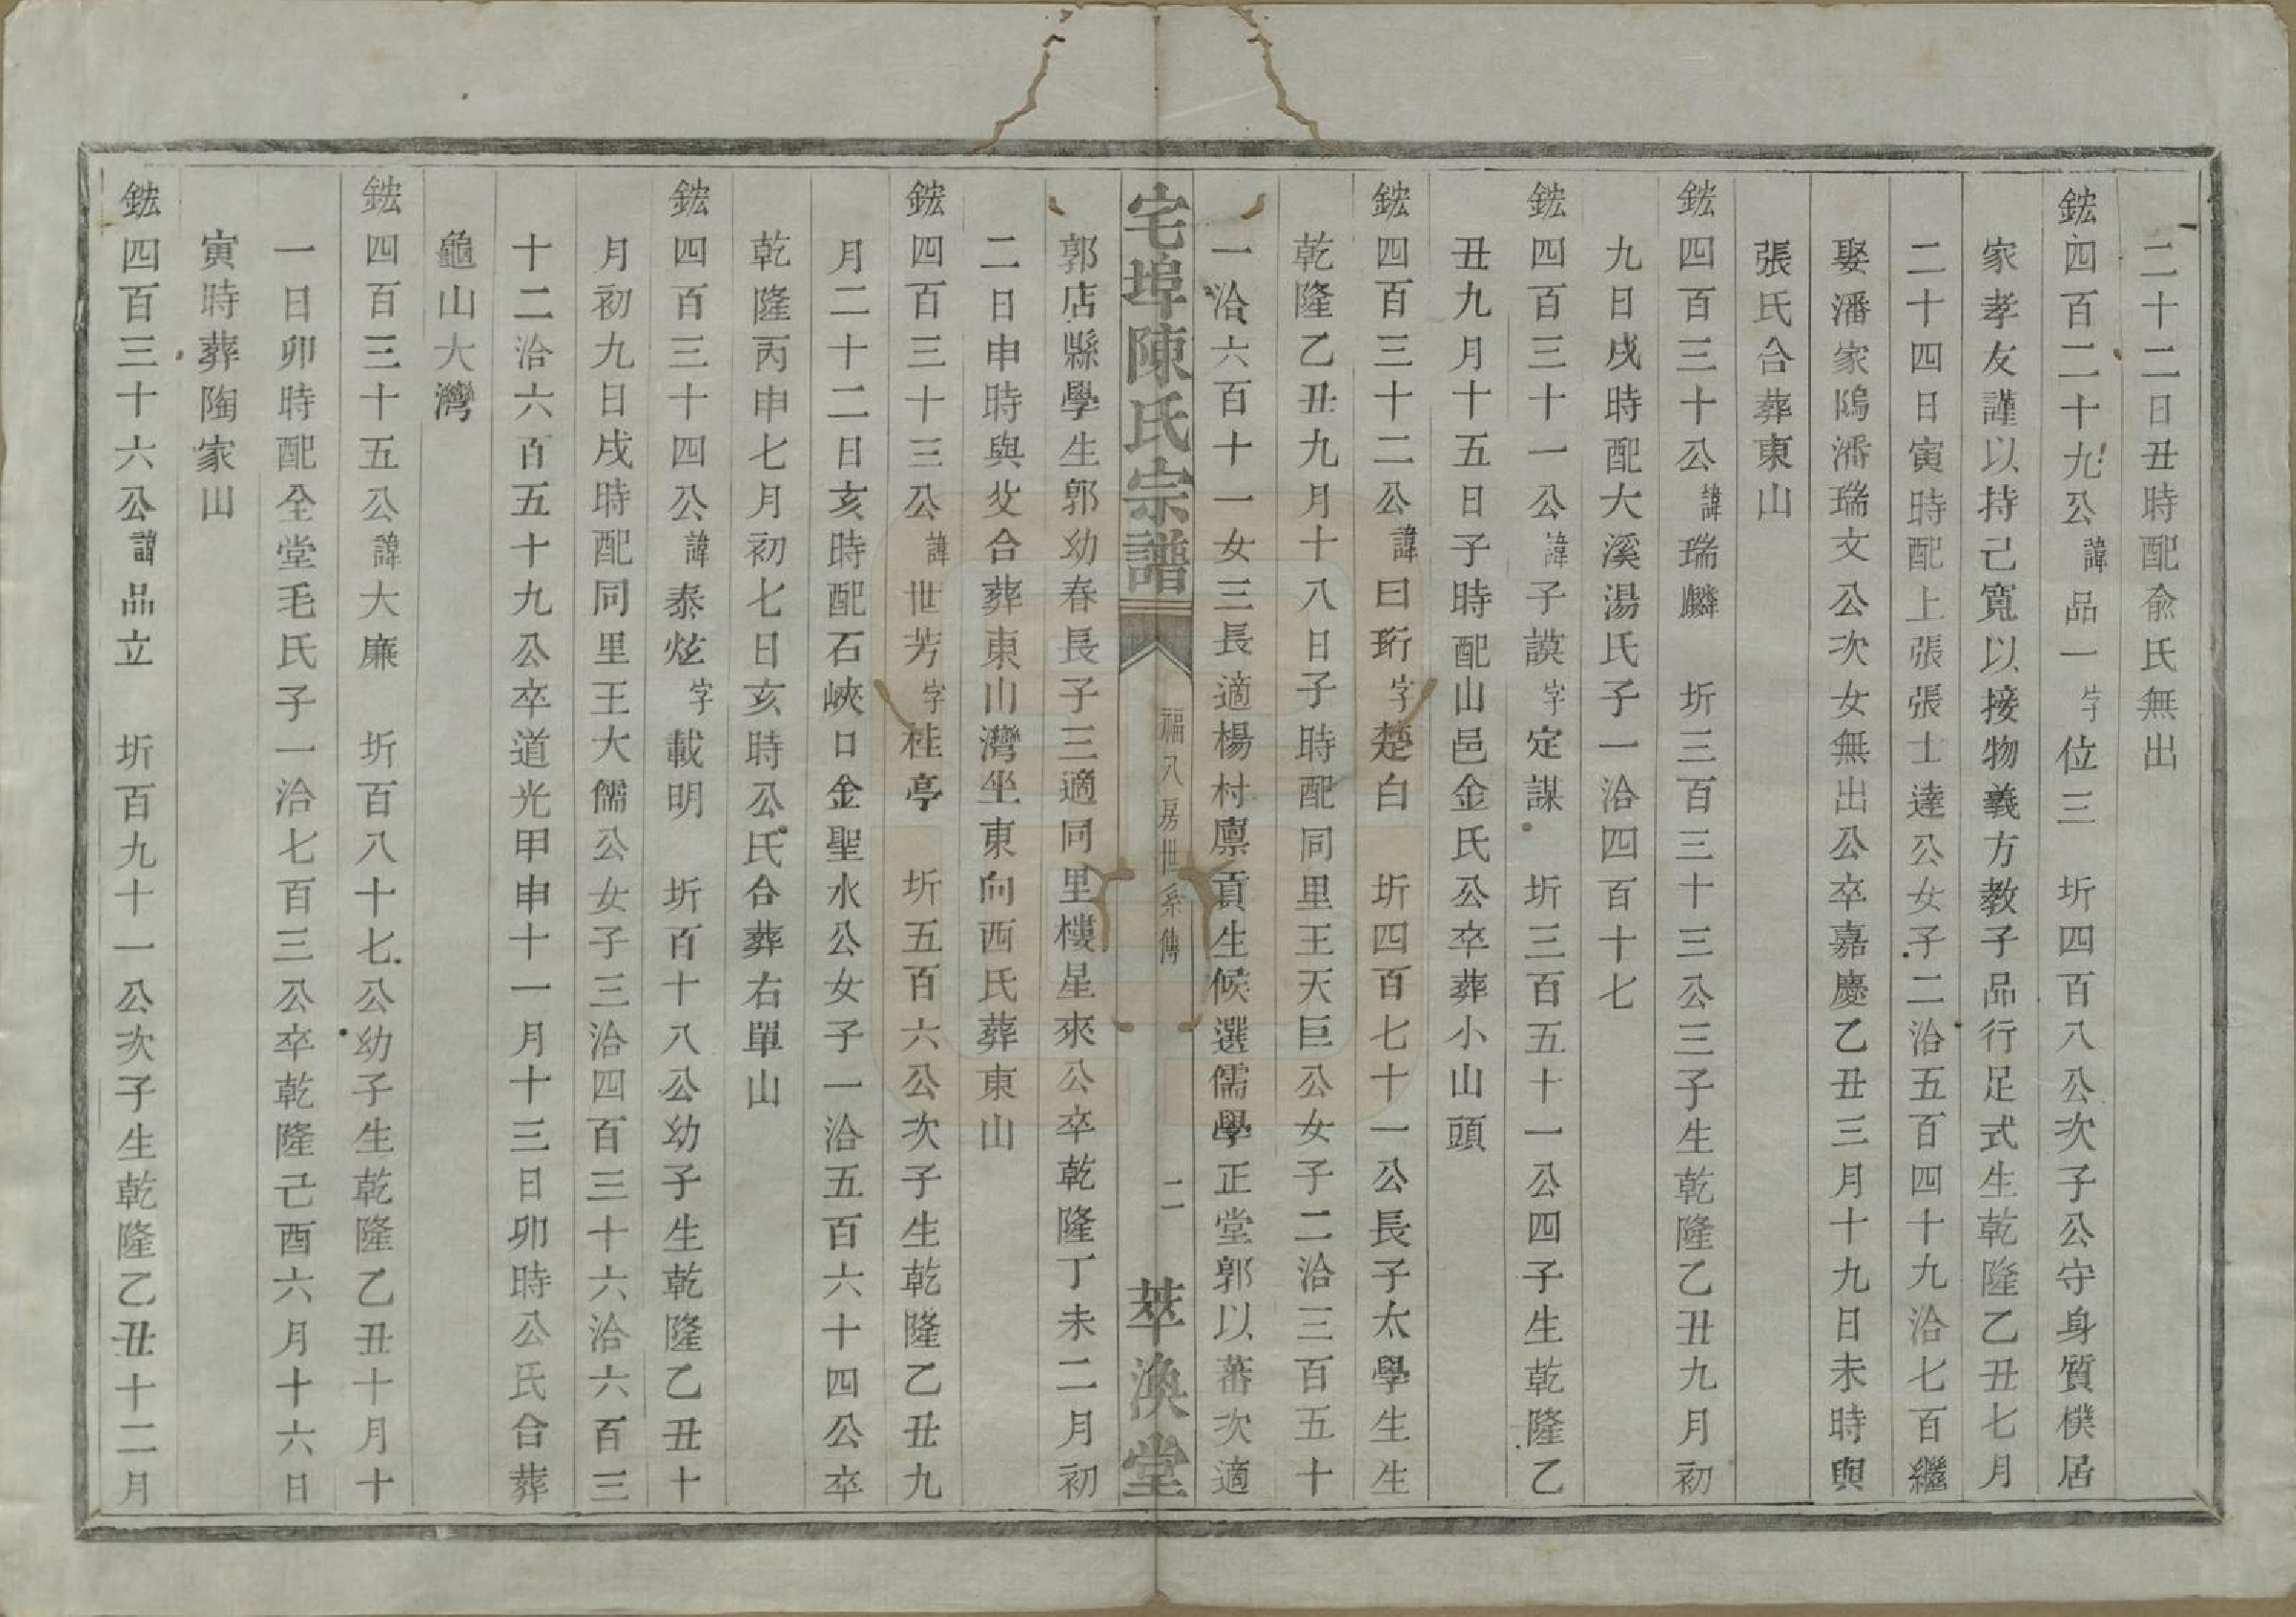 二十二日丑時配俞氏無出
鋐四百二十九公諱品一字位三 圻四百八公次子公守身質樸居
家孝友謹以持己寬以接物義方教子品行足式生乾隆乙丑七月
二十四日寅時配上張張士達公女子二洽五百四十九洽七百繼
娶潘家隖潘瑞文公次女無出公卒嘉慶乙丑三月十九日未時與
張氏合葬東山
鋐四百三十公諱瑞麟 圻三百三十三公三子生乾隆乙丑九月初
九日戌時配大溪湯氏子一洽四百十七
鋐四百三十一公諱子謨字定謀 圻三百五十一公四子生乾隆乙
丑九月十五日子時配山邑金氏公卒葬小山頭
鋐四百三十二公諱曰珩字楚白 圻四百七十一公長子太學生生
乾隆乙丑九月十八日子時配同里王天巨公女子二洽三百五十
一洽六百十一女三長適楊村廪貢生候選儒學正堂郭以蕃次適
宅埠陳氏宗譜 福八房世系傳 二 萃渙堂
郭店縣學生郭幼春長子三適同里樓星來公卒乾隆丁未二月初
二日申時與父合葬東山灣坐東向西氏葬東山
鋐四百三十三公諱世芳字桂亭 圻五百六公次子生乾隆乙丑九
月二十二日亥時配石峽口金聖水公女子一洽五百六十四公卒
乾隆丙申七月初七日亥時公氏合葬右單山
鋐四百三十四公諱泰炫字載明 圻百十八公幼子生乾隆乙丑十
月初九日戌時配同里王大儒公女子三洽四百三十六洽六百三
十二洽六百五十九公卒道光甲申十一月十三日卯時公氏合葬
龜山大灣
鋐四百三十五公諱大廉 圻百八十七公幼子生乾隆乙丑十月十
一日卯時配全堂毛氏子一洽七百三公卒乾隆己酉六月十六日
寅時葬陶家山
鋐四百三十六公諱品立 圻百九十一公次子生乾隆乙丑十二月